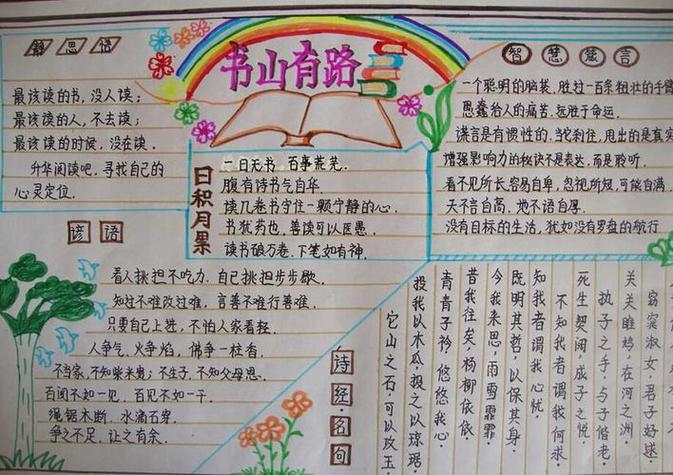 书山有路
静思语
最该读的书,没人读;
最该读的人,不去读;
最该读的时候,没在读.
升华阅读吧,寻找自己的
心灵定位.
日积月累
一日无书 百事荒芜.
腹有诗书气自华.
读几卷书守住一颗宁静的心.
书犹药也,善读可以医愚.
读书破万卷,下笔如有神.
智慧箴言
一个聪明的脑袋,胜过一百条粗壮的手臂
愚蠢给人的痛苦,远胜于命运.
谎言是有惯性的,当它刹住,甩出的是真实
增强影响力的秘诀不是表达,而是聆听.
看不见所长,容易自卑,忽视所短,可能自满.
天不言自高,地不语自厚.
没有目标的生活,犹如没有罗盘的航行
谚语
看人挑担不吃力,自己挑担步步歇.
知过不难改过难,言善不难行善难.
只要自己上进,不怕人家看轻.
人争气,火争焰,佛争一柱香.
不当家,不知柴米贵;不生子,不知父母恩.
百闻不如一见,百见不如一干.
绳锯木断,水滴石穿.
争之不足,让之有余.
诗经·名句
窈窕淑女,君子好逑.
关关雎鸠,在河之洲
执子之手,与子偕老
死生契阔,成子之悦
不知我者谓我何求.
知我者谓我心忧,
既明其哲,以保其身.
今我来思,雨雪霏霏
昔我往矣,杨柳依依.
青青子衿,悠悠我心.
投我以木瓜,报之以琼琚.
它山之石,可以攻玉